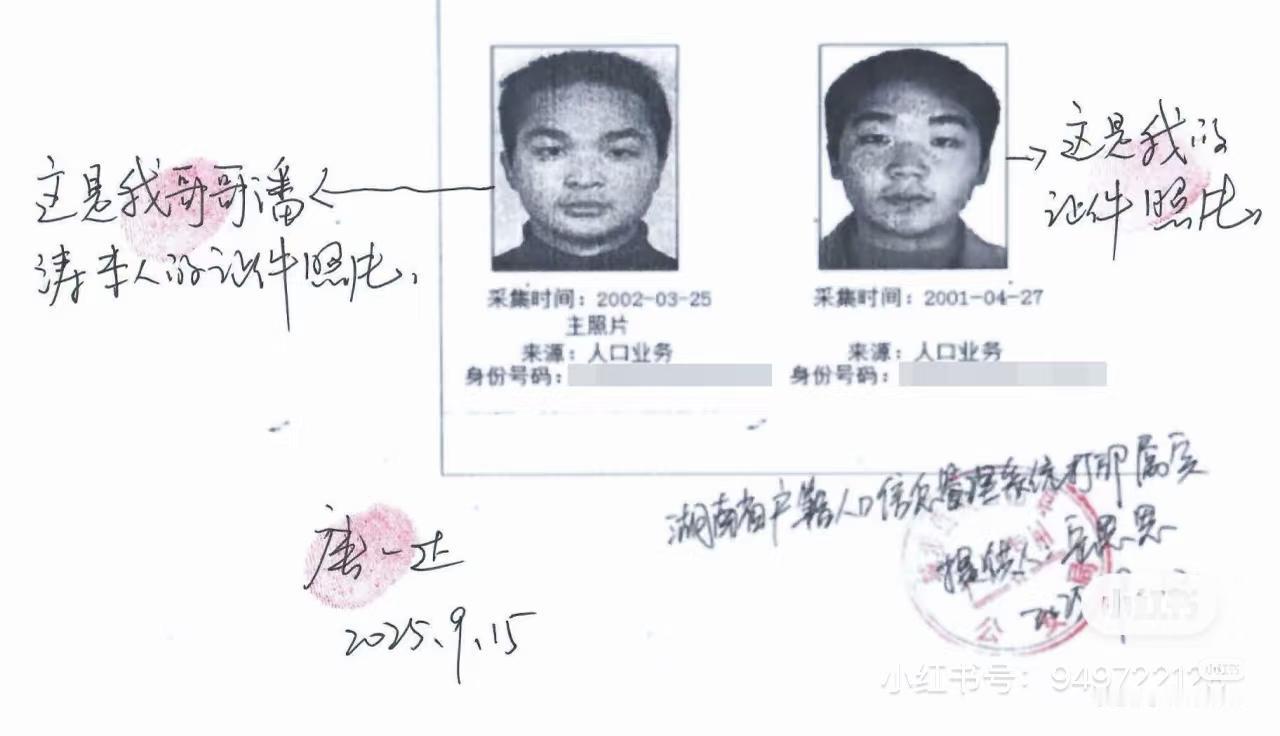 这是我哥哥潘
涛本人的证件照片,
这是我的
证件照片,
采集时间：2002-03-25
主照片
来源：人口业务
身份号码：
采集时间：2001-04-27
来源：人口业务
身份号码：
湖南省户籍人口信息管理系统打印属实
提供人：
唐一达
2025.9.15
公
局
小红书
小红书号：949722124
小红书